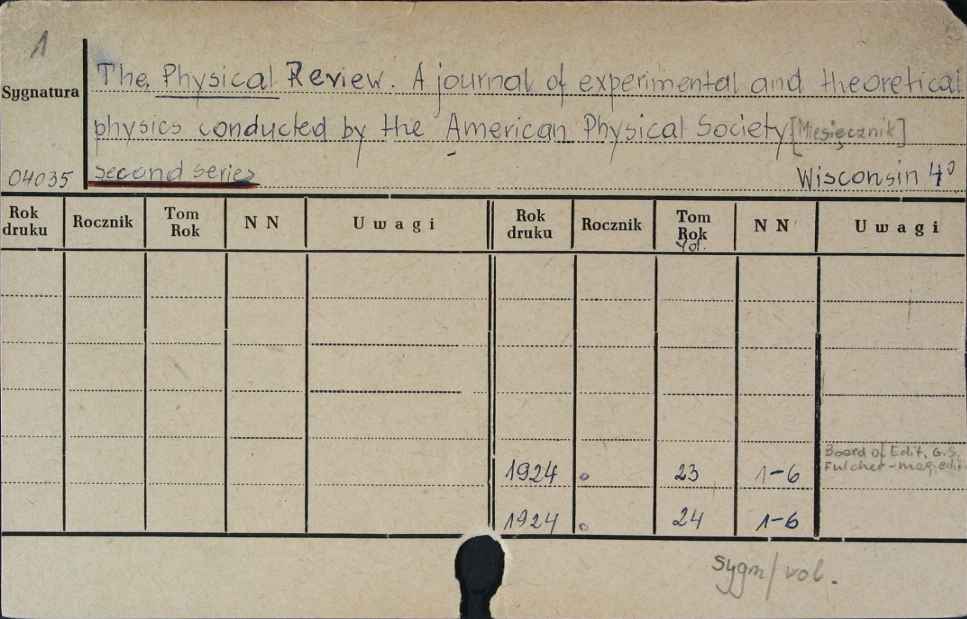 1
The Physical Review. A journal of experimental and theoretical
Sygnatura
physics conducted by the American Physical Society [Miesięcznik]
04035 second series Wisconsin 4°
Rok druku Rocznik Tom Rok N N Uwagi Rok druku Rocznik Tom Rok Vol. N N Uwagi
Board of Edit. G.S.
Fulcher - mag. edit.
1924 o 23 1-6
1924 o 24 1-6
sygn/vol.